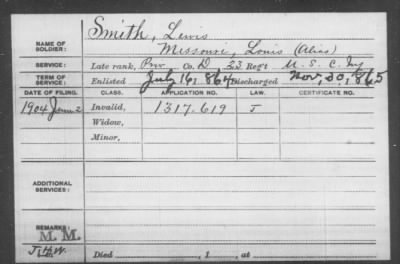 NAME OF SOLDIER: Smith, Lewis
Missouri, Louis (Alias)
SERVICE: Late rank, Priv. Co. D 23 Reg't U. S. C. Inf
TERM OF SERVICE: Enlisted July 16, 1864 Discharged Nov, 30, 1865
DATE OF FILING. CLASS. APPLICATION NO. LAW. CERTIFICATE NO.
1904 June 2 Invalid, 1317.619 J
Widow,
Minor,
ADDITIONAL SERVICES:
REMARKS:
M. M.
Died , 1 , at